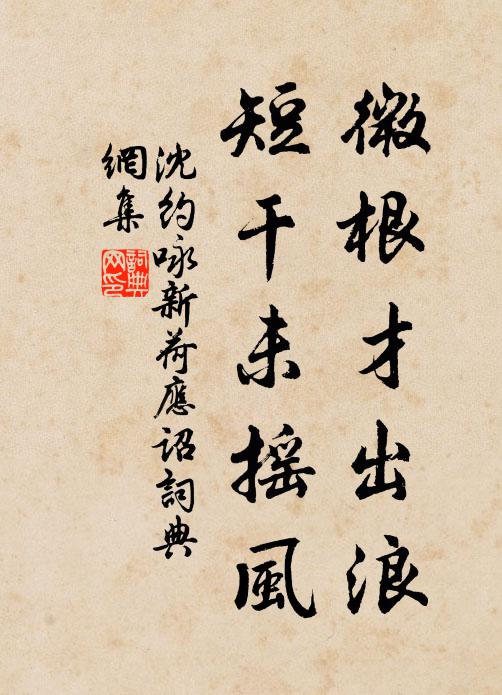 微根才出浪
短干未摇風
沈約咏新荷應詔詞典
網集
詞典
网印